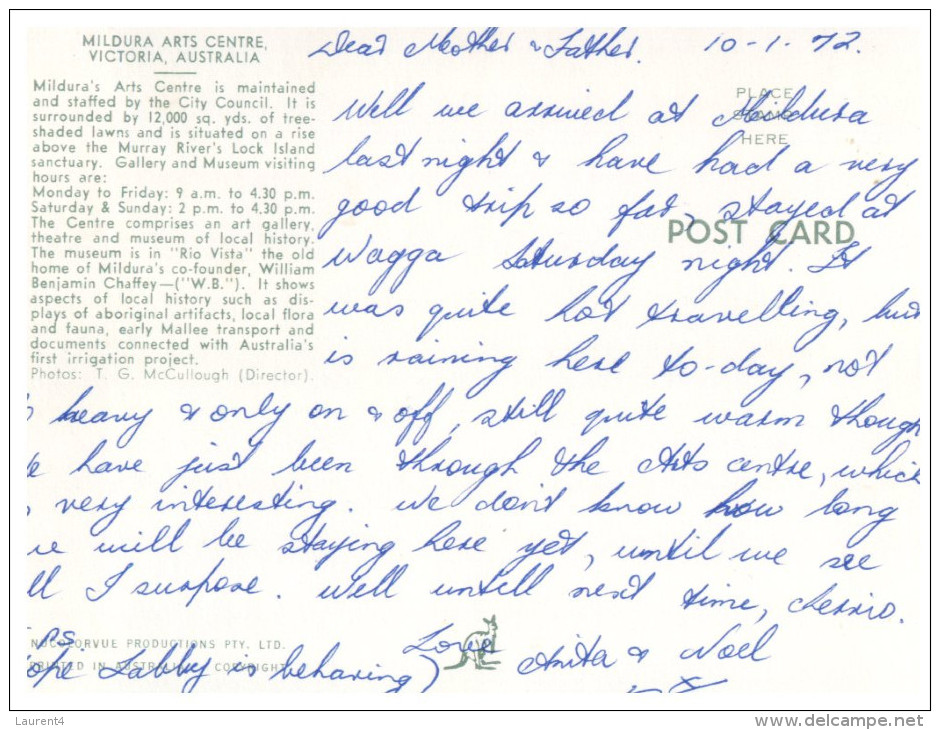 MILDURA ARTS CENTRE,
VICTORIA, AUSTRALIA
Mildura's Arts Centre is maintained
and staffed by the City Council. It is
surrounded by 12,000 sq. yds. of tree-
shaded lawns and is situated on a rise
above the Murray River's Lock Island
sanctuary. Gallery and Museum visiting
hours are:
Monday to Friday: 9 a.m. to 4.30 p.m.
Saturday & Sunday: 2 p.m. to 4.30 p.m.
The Centre comprises an art gallery,
theatre and museum of local history.
The museum is in "Rio Vista" the old
home of Mildura's co-founder, William
Benjamin Chaffey—("W.B."). It shows
aspects of local history such as dis-
plays of aboriginal artifacts, local flora
and fauna, early Mallee transport and
documents connected with Australia's
first irrigation project.
Photos: T. G. McCullough (Director).
PLACE
STAMP
HERE
POST CARD
Dear Mother & Father. 10-1-72.
Well we arrived at Mildura
last night & have had a very
good trip so far, stayed at
Wagga Saturday night. It
was quite hot travelling, but
is raining here to-day, not
heavy & only on & off, still quite warm though
have just been through the Arts centre, which
very interesting. We don't know how long
we will be staying here yet, until we see
ll I supose. Well untill next time, cherrio.
Love Anita & Noel
PS
ope Labby is behaving)
NUCOLORVUE PRODUCTIONS PTY. LTD.
PRINTED IN AUSTRALIA COPYRIGHT
Laurent4
www.delcampe.net